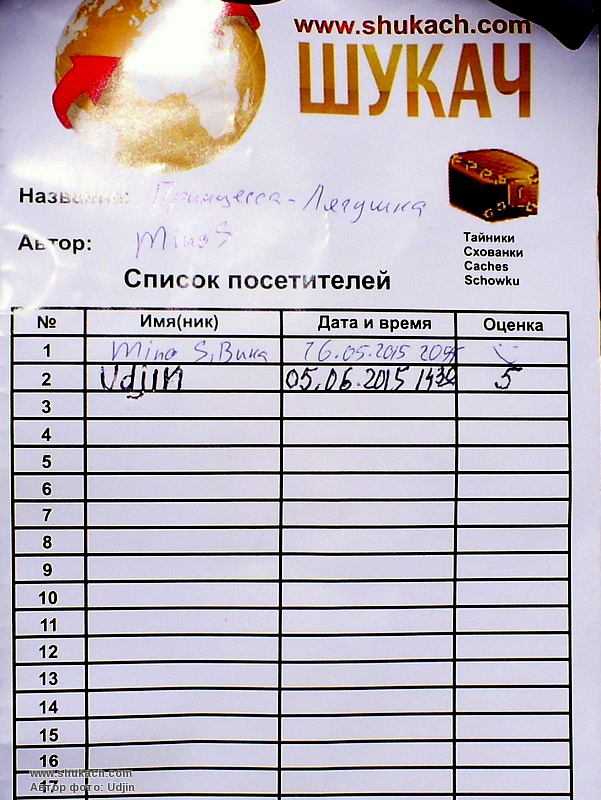 www.shukach.com
ШУКАЧ
Название: Принцесса-Лягушка
Автор: MinoS
Тайники
Схованки
Caches
Schowku
Список посетителей
№ Имя(ник) Дата и время Оценка
1 Mino S, Вика 16.05.2015
2 Udjin 05.06.2015 5
3
4
5
6
7
8
9
10
11
12
13
14
15
16
17
www.shukach.com
Автор фото: Udjin